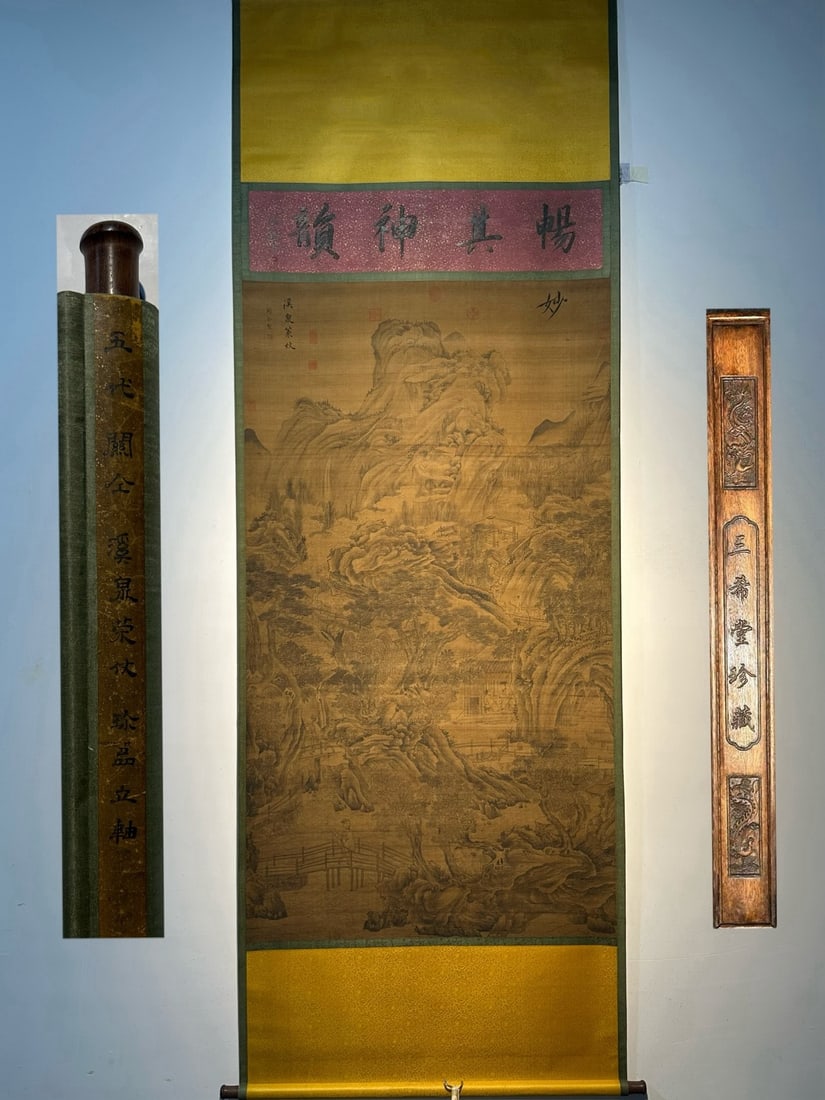 暢其神韻
妙
溪泉策仗
五代關仝 溪泉策仗 珍品立軸
三希堂珍藏